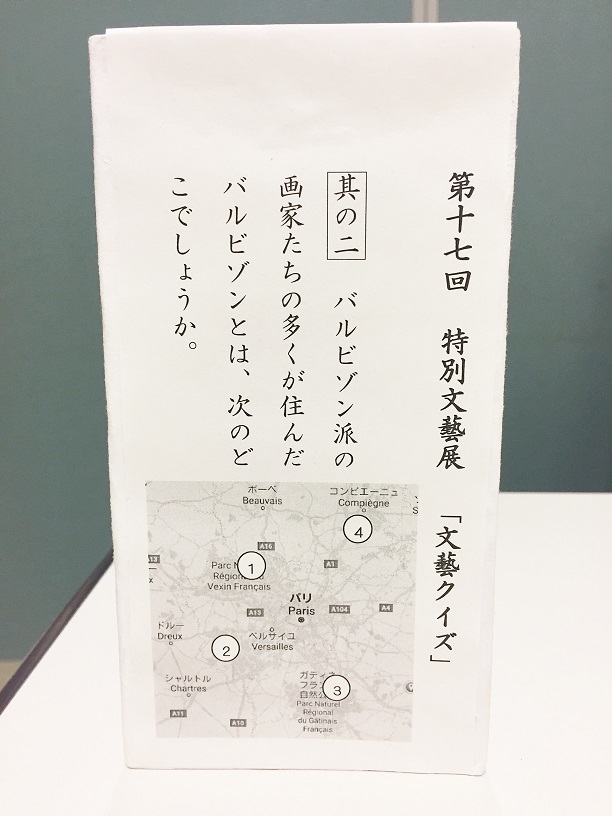 第十七回 特別文藝展 「文藝クイズ」
其の二 バルビゾン派の
画家たちの多くが住んだ
バルビゾンとは、次のど
こでしょうか。
ボーベ
Beauvais
コンピエーニュ
Compiègne
4
A16
A1
Parc N
Régional
1
Vexin Français
パリ
Paris
A13
A104
A4
ドルー
Dreux
ベルサイユ
Versailles
2
シャルトル
Chartres
ガティネ
フラン
自然公
3
Parc Naturel
Régional
du Gâtinais
Français
A11
A10